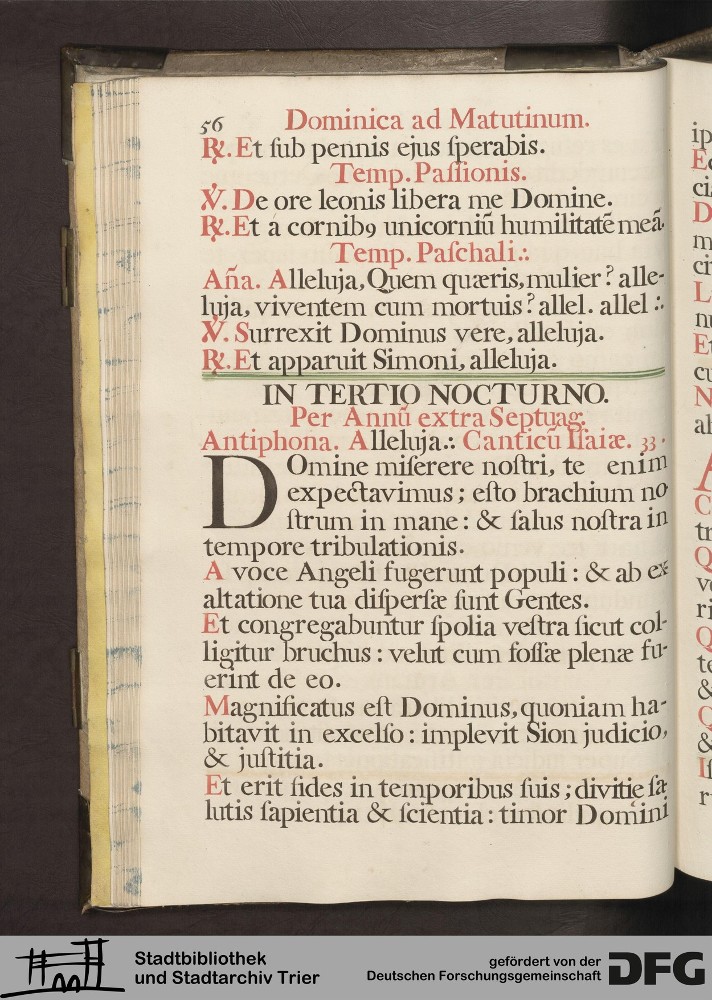 56 Dominica ad Matutinum.
℟. Et ſub pennis ejus ſperabis.
Temp. Paſſionis.
℣. De ore leonis libera me Domine.
℟. Et a cornibꝯ unicorniū humilitatē meā.
Temp. Paſchali.:
Aña. Alleluja, Quem quæris, mulier? alle-
luja, viventem cum mortuis? allel. allel.:
℣. Surrexit Dominus vere, alleluja.
℟. Et apparuit Simoni, alleluja.
IN TERTIO NOCTURNO.
Per Annū extra Septuag.
Antiphona. Alleluja.: Canticū Iſaiæ. 33.
DOmine miſerere noſtri, te enim
expectavimus; eſto brachium no
ſtrum in mane: & ſalus noſtra in
tempore tribulationis.
A voce Angeli fugerunt populi: & ab ex-
altatione tua diſperſæ ſunt Gentes.
Et congregabuntur ſpolia veſtra ſicut col-
ligitur bruchus: velut cum foſſæ plenæ fu-
erint de eo.
Magnificatus eſt Dominus, quoniam ha-
bitavit in excelſo: implevit Sion judicio,
& juſtitia.
Et erit fides in temporibus ſuis; divitię ſa-
lutis ſapientia & ſcientia: timor Domini
ip
E
ci
D
m
ci
L
nu
Et
cu
N
al
A
C
tr
Q
ve
ri
Q
te
&
Q
&
Iſ
r
Stadtbibliothek
und Stadtarchiv Trier
gefördert von der
Deutschen Forschungsgemeinschaft
DFG